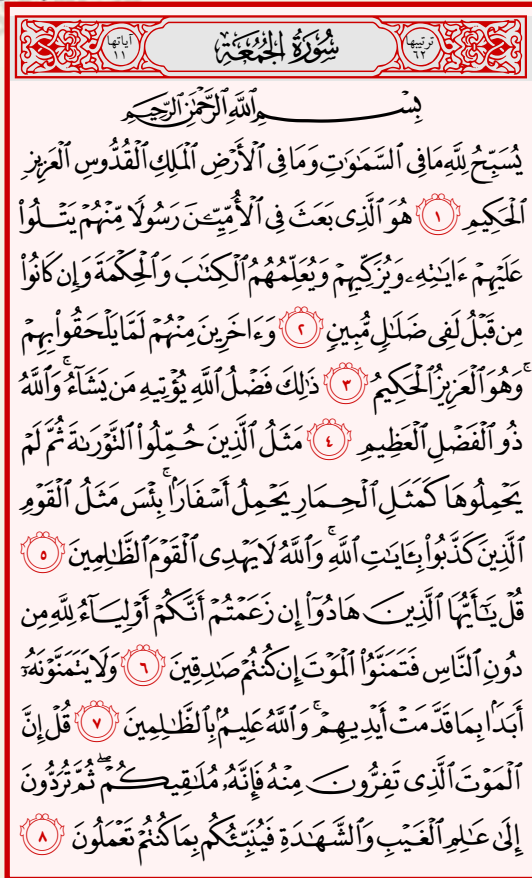 ترتيبها ٦٢ سُورَةُ الجُمُعَةِ آياتها ١١
بِسْمِ اللَّهِ الرَّحْمَٰنِ الرَّحِيمِ
يُسَبِّحُ لِلَّهِ مَا فِى السَّمَٰوَٰتِ وَمَا فِى الْأَرْضِ الْمَلِكِ الْقُدُّوسِ الْعَزِيزِ
الْحَكِيمِ ١ هُوَ الَّذِى بَعَثَ فِى الْأُمِّيِّـۧنَ رَسُولًا مِّنْهُمْ يَتْلُوا۟
عَلَيْهِمْ ءَايَٰتِهِۦ وَيُزَكِّيهِمْ وَيُعَلِّمُهُمُ الْكِتَٰبَ وَالْحِكْمَةَ وَإِن كَانُوا۟
مِن قَبْلُ لَفِى ضَلَٰلٍ مُّبِينٍ ٢ وَءَاخَرِينَ مِنْهُمْ لَمَّا يَلْحَقُوا۟ بِهِمْ
ۚ وَهُوَ الْعَزِيزُ الْحَكِيمُ ٣ ذَٰلِكَ فَضْلُ اللَّهِ يُؤْتِيهِ مَن يَشَآءُ ۚ وَاللَّهُ
ذُو الْفَضْلِ الْعَظِيمِ ٤ مَثَلُ الَّذِينَ حُمِّلُوا۟ التَّوْرَىٰةَ ثُمَّ لَمْ
يَحْمِلُوهَا كَمَثَلِ الْحِمَارِ يَحْمِلُ أَسْفَارًۢا ۚ بِئْسَ مَثَلُ الْقَوْمِ
الَّذِينَ كَذَّبُوا۟ بِـَٔايَٰتِ اللَّهِ ۚ وَاللَّهُ لَا يَهْدِى الْقَوْمَ الظَّٰلِمِينَ ٥
قُلْ يَٰٓأَيُّهَا الَّذِينَ هَادُوٓا۟ إِن زَعَمْتُمْ أَنَّكُمْ أَوْلِيَآءُ لِلَّهِ مِن
دُونِ النَّاسِ فَتَمَنَّوُا۟ الْمَوْتَ إِن كُنتُمْ صَٰدِقِينَ ٦ وَلَا يَتَمَنَّوْنَهُۥٓ
أَبَدًۢا بِمَا قَدَّمَتْ أَيْدِيهِمْ ۚ وَاللَّهُ عَلِيمٌۢ بِالظَّٰلِمِينَ ٧ قُلْ إِنَّ
الْمَوْتَ الَّذِى تَفِرُّونَ مِنْهُ فَإِنَّهُۥ مُلَٰقِيكُمْ ۖ ثُمَّ تُرَدُّونَ
إِلَىٰ عَٰلِمِ الْغَيْبِ وَالشَّهَٰدَةِ فَيُنَبِّئُكُم بِمَا كُنتُمْ تَعْمَلُونَ ٨